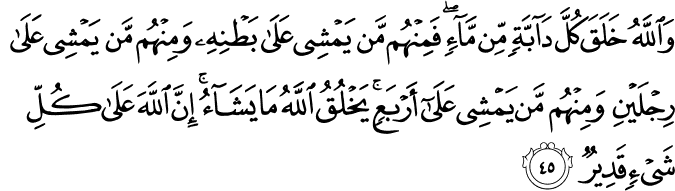 وَٱللَّهُ خَلَقَ كُلَّ دَآبَّةٍ مِّن مَّآءٍ ۖ فَمِنْهُم مَّن يَمْشِى عَلَىٰ بَطْنِهِۦ وَمِنْهُم مَّن يَمْشِى عَلَىٰ
رِجْلَيْنِ وَمِنْهُم مَّن يَمْشِى عَلَىٰٓ أَرْبَعٍ ۚ يَخْلُقُ ٱللَّهُ مَا يَشَآءُ ۚ إِنَّ ٱللَّهَ عَلَىٰ كُلِّ
شَىْءٍ قَدِيرٌ ۝٤٥